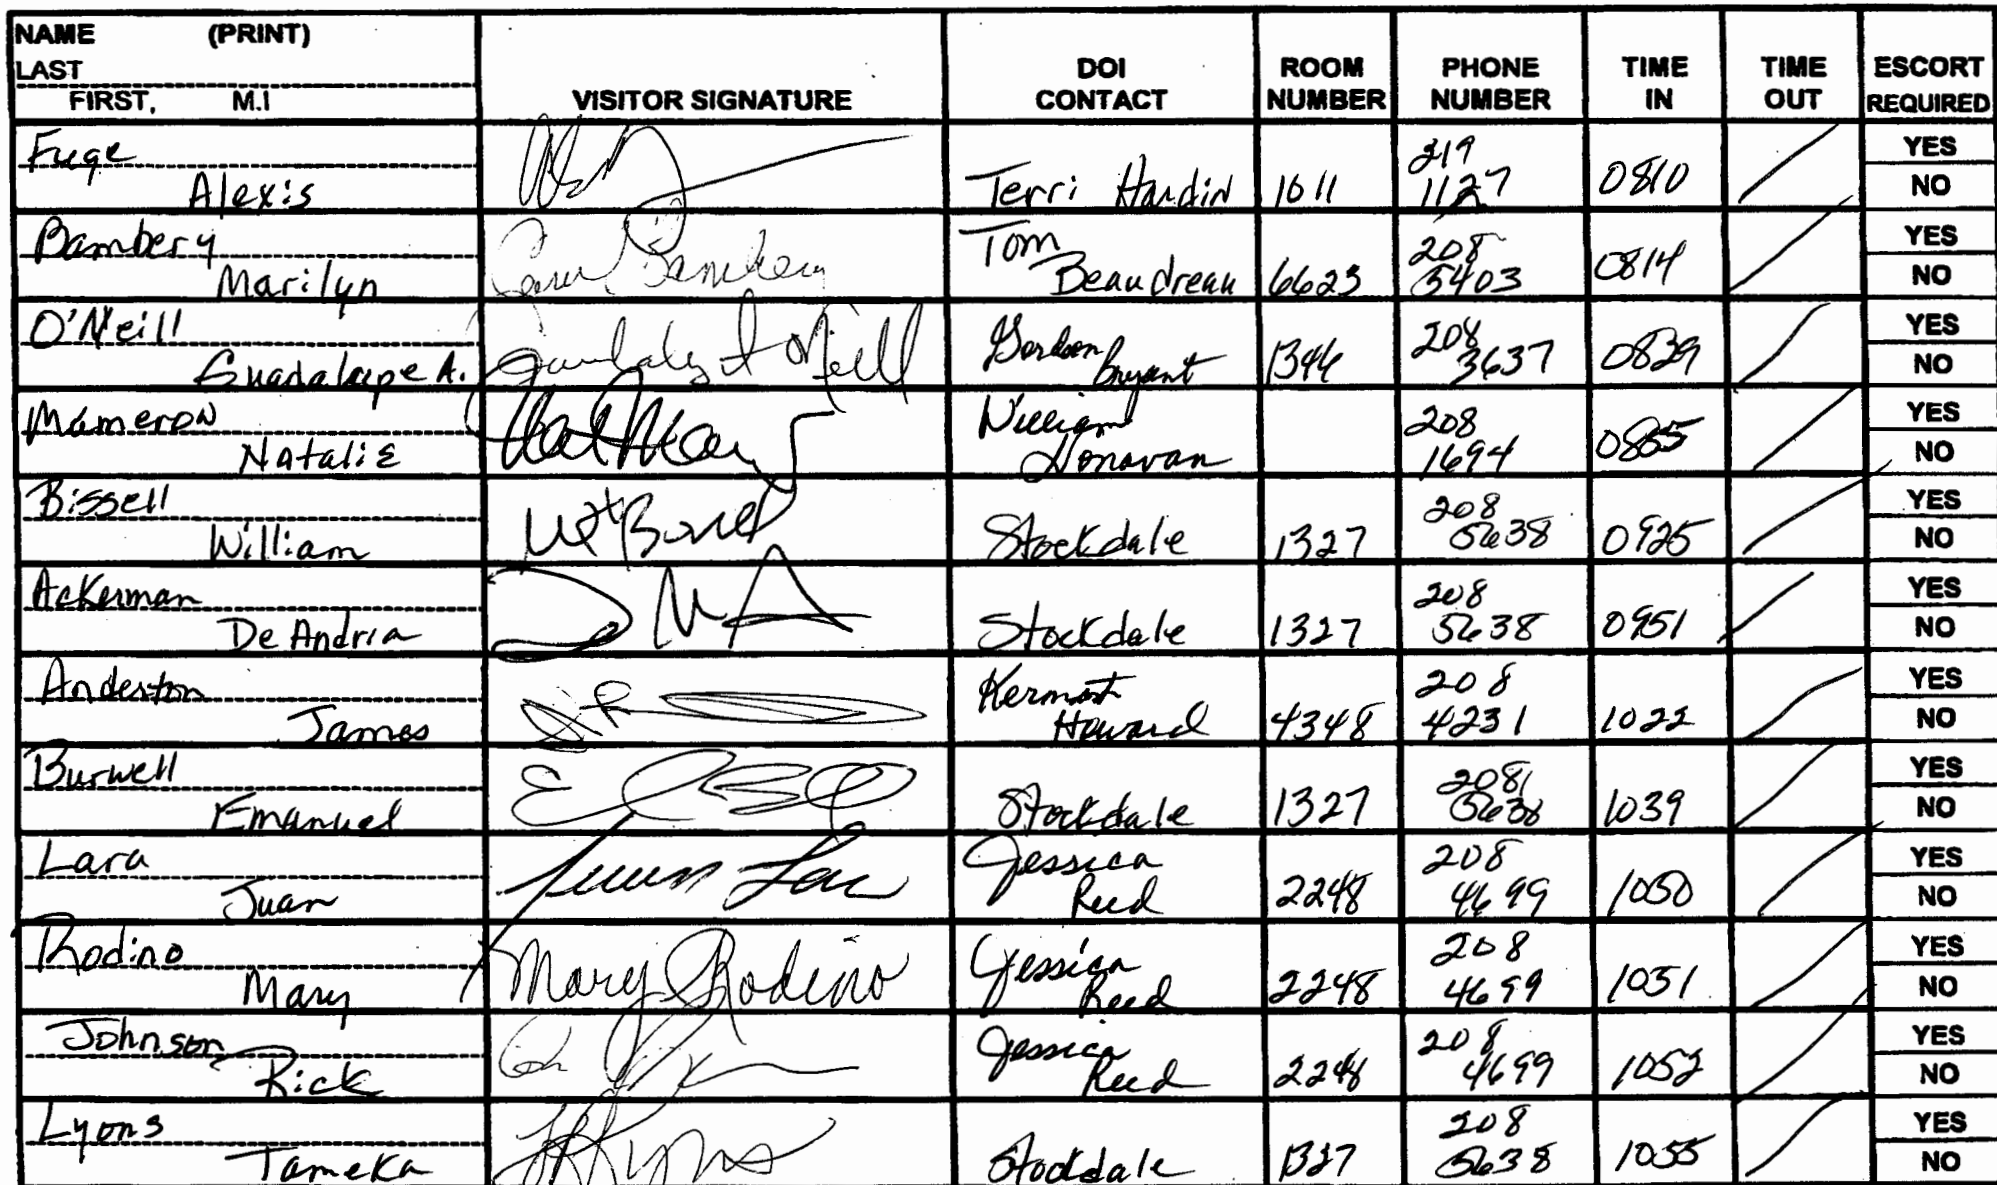 NAME (PRINT)
LAST
FIRST, M.I
VISITOR SIGNATURE
DOI CONTACT
ROOM NUMBER
PHONE NUMBER
TIME IN
TIME OUT
ESCORT REQUIRED
Fuge Alexis Terri Hardin 1011 219 1127 0810 YES NO
Bambery Marilyn Tom Beaudreau 6623 208 5403 0814 YES NO
O'Neill Guadalupe A. Gordon Bryant 1346 208 3637 0839 YES NO
Mameron Natalie William Donovan 208 1694 YES NO
Bissell William Stockdale 1327 208 5638 0925 YES NO
Ackerman DeAndria Stockdale 1327 208 5638 0951 YES NO
Anderton James Howard 4348 208 4231 1022 YES NO
Burwell Emanuel Stockdale 1327 208 5638 1039 YES NO
Lara Juan Jessica Reed 2248 208 4699 1050 YES NO
Rodino Mary Mary Rodino Jessica Reed 2248 208 4699 1051 YES NO
Johnson Rick Jessica Reed 2248 208 4699 1052 YES NO
Lyons Tameka Stockdale 1327 208 5638 1055 YES NO